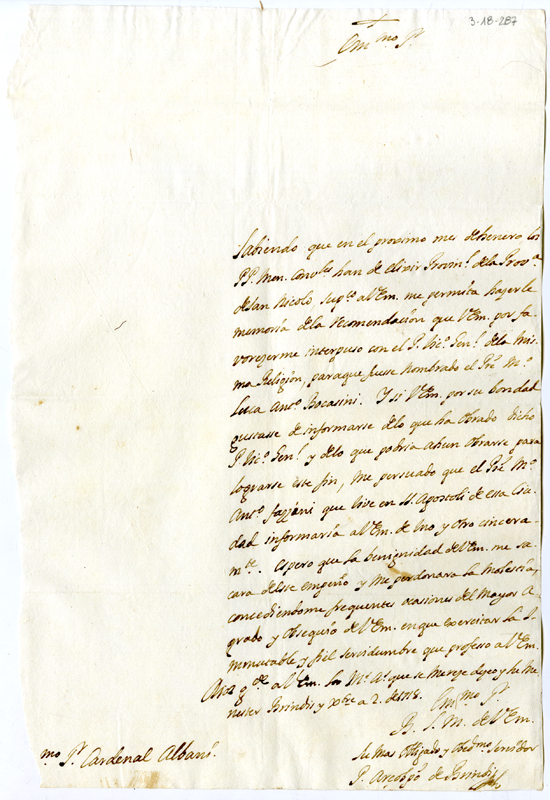 3-18-287
Em.mo S.r
Sabiendo que en el proximo mes de henero los
PP. Men. Conv.les han de elixir Provin.l de la Prov.a
de San Nicolo sup.co a V Em. me permita hazerle
memoria de la recomendacion que V Em. por fa-
vorezerme interpuso con el P. Vic.o Gen.l de la mis-
ma Religion, paraque fuese nombrado el P.re M.o
Luca Ant.o Bocasini. Y si V Em. por su bondad
gustasse de informarse de lo que ha obrado dicho
P. Vic.o Gen.l y de lo que podria ahun obrarse para
lograrse este fin, me persuado que el P.re M.o
Ant.o que vive en SS. Apostoli de esta Ciu-
dad informaria a V Em. de uno y otro sincera-
m.te. Espero que la benignidad de V Em. me sa-
cara de ese empeño y me perdonara la molestia,
concediendome frequentes ocasiones del mayor a-
grado y obsequio de V Em. en que exercitar la I-
nmutable y fiel servidumbre que professo a V Em.
g.de a V Em. los m.s a.s que se mereze deseo y he me-
nester Brindis y Xbre a 2. de 1718.
Em.mo S.r
B. L. M. de V Em.
Su mas obligado y Servidor
P. Arçobpo de Brindis
mo S.r Cardenal Albani.